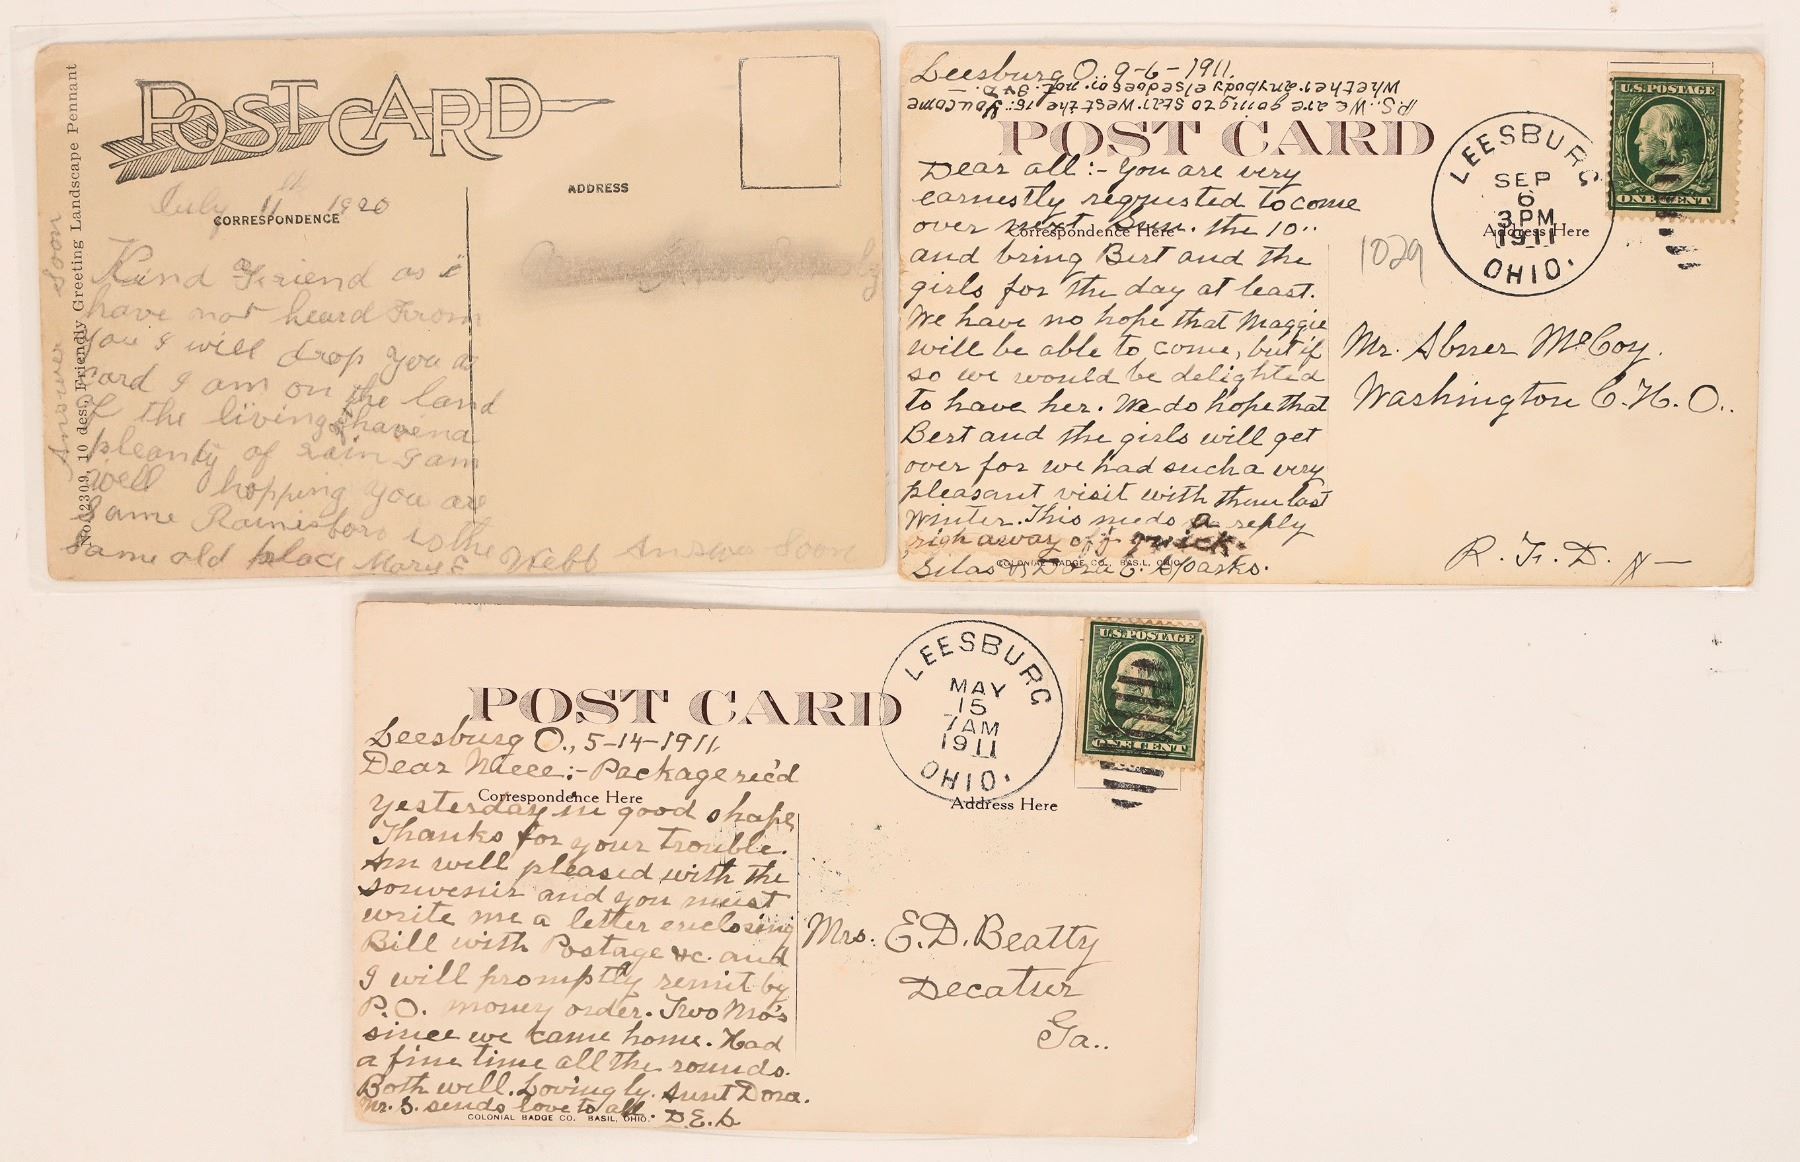 POST CARD
No. 2309, 10 des., Friendly Greeting Landscape Pennant
July 11th 1920
CORRESPONDENCE
ADDRESS
Kind Friend as i
have not heard From
you I will drop you a
card I am on the land
of the living & havend
pleanty of rain I am
well hopping you are
Same Rainisboro is the
same old place Mary E Webb Answer Soon
Answer Soon
Leesburg O. 9-6-1911.
P.S. We are going to stay west the 15: You come
whether anybody else does or not.
POST CARD
Dear all:- You are very
earnestly requested to come
over next Sun. the 10..
Correspondence Here
and bring Bert and the
girls for the day at least.
We have no hope that Maggie
will be able to come, but if
so we would be delighted
to have her. We do hope that
Bert and the girls will get
over for we had such a very
pleasant visit with them last
Winter. This needs a reply
righ away off quick.
Silas & Dora E. Sparks.
COLONIAL BADGE CO., BASIL, OHIO
LEESBURG
SEP
6
3 PM
1911
OHIO.
U.S. POSTAGE
ONE CENT
Address Here
1029
Mr. Abner McCoy.
Washington C.H.O..
R.F.D. N—
POST CARD
Leesburg O., 5-14-1911,
Dear Niece:- Package rec'd
Correspondence Here
yesterday in good shape,
Thanks for your trouble.
Am well pleased with the
souvenir and you must
write me a letter enclosing
Bill with Postage &c. and
I will promptly remit by
P.O. money order. Two Mo's
since we came home. Had
a fine time all the rounds.
Both well. Lovingly. Aunt Dora.
Mr. S. sends love to all. D.E.S
COLONIAL BADGE CO. BASIL, OHIO.
LEESBURG
MAY
15
7 AM
1911
OHIO.
U.S. POSTAGE
ONE CENT
Address Here
Mrs. E.D. Beatty
Decatur
Ga..